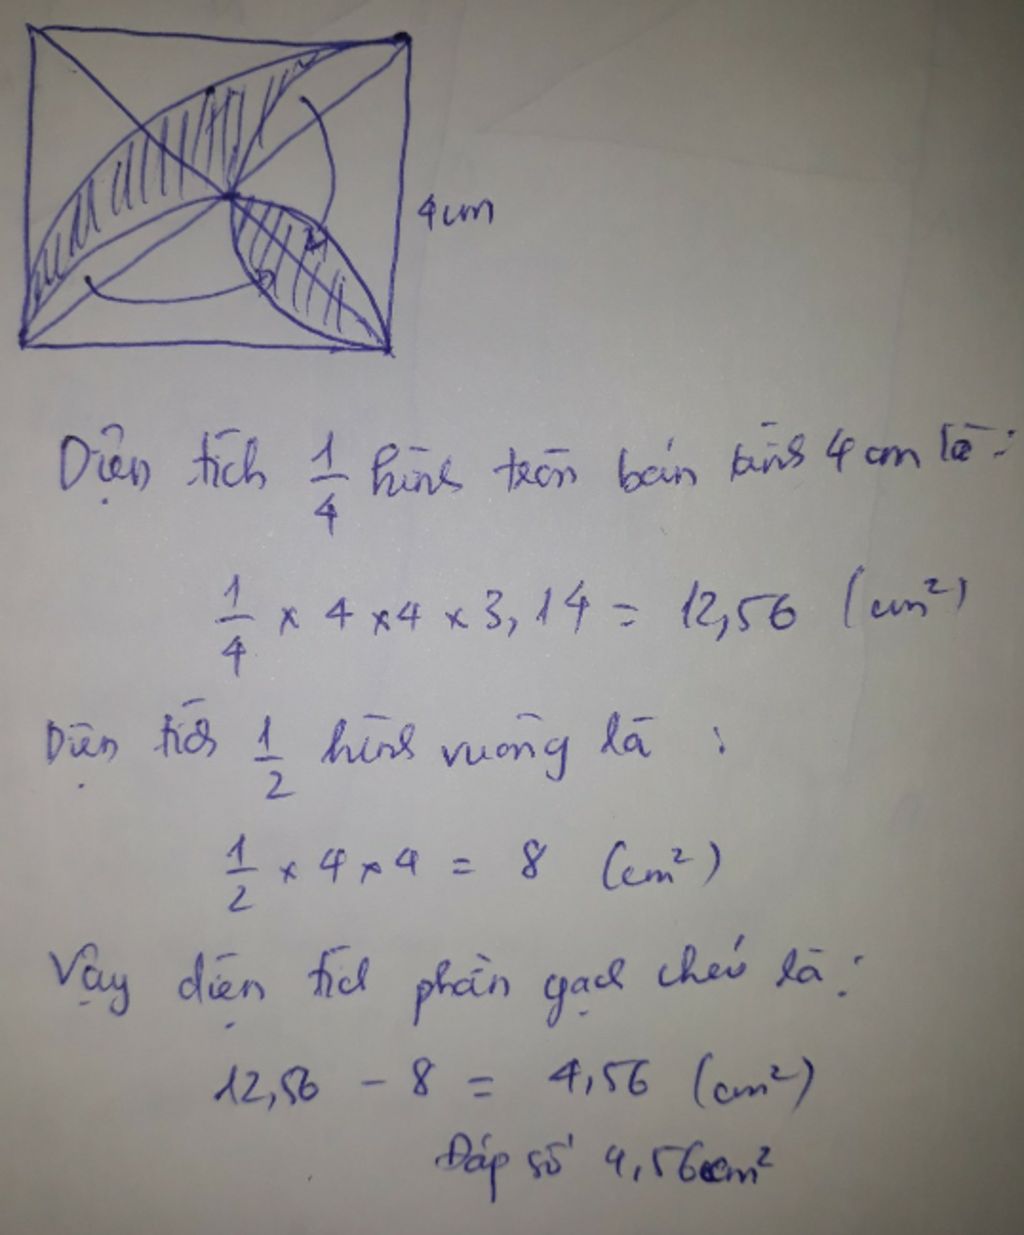 4cm
Diện tích 1/4 hình tròn bán kính 4 cm là:
1/4 × 4 × 4 × 3,14 = 12,56 (cm²)
Diện tích 1/2 hình vuông là :
1/2 × 4 × 4 = 8 (cm²)
Vậy diện tích phần gạch chéo là:
12,56 - 8 = 4,56 (cm²)
Đáp số 4,56cm²